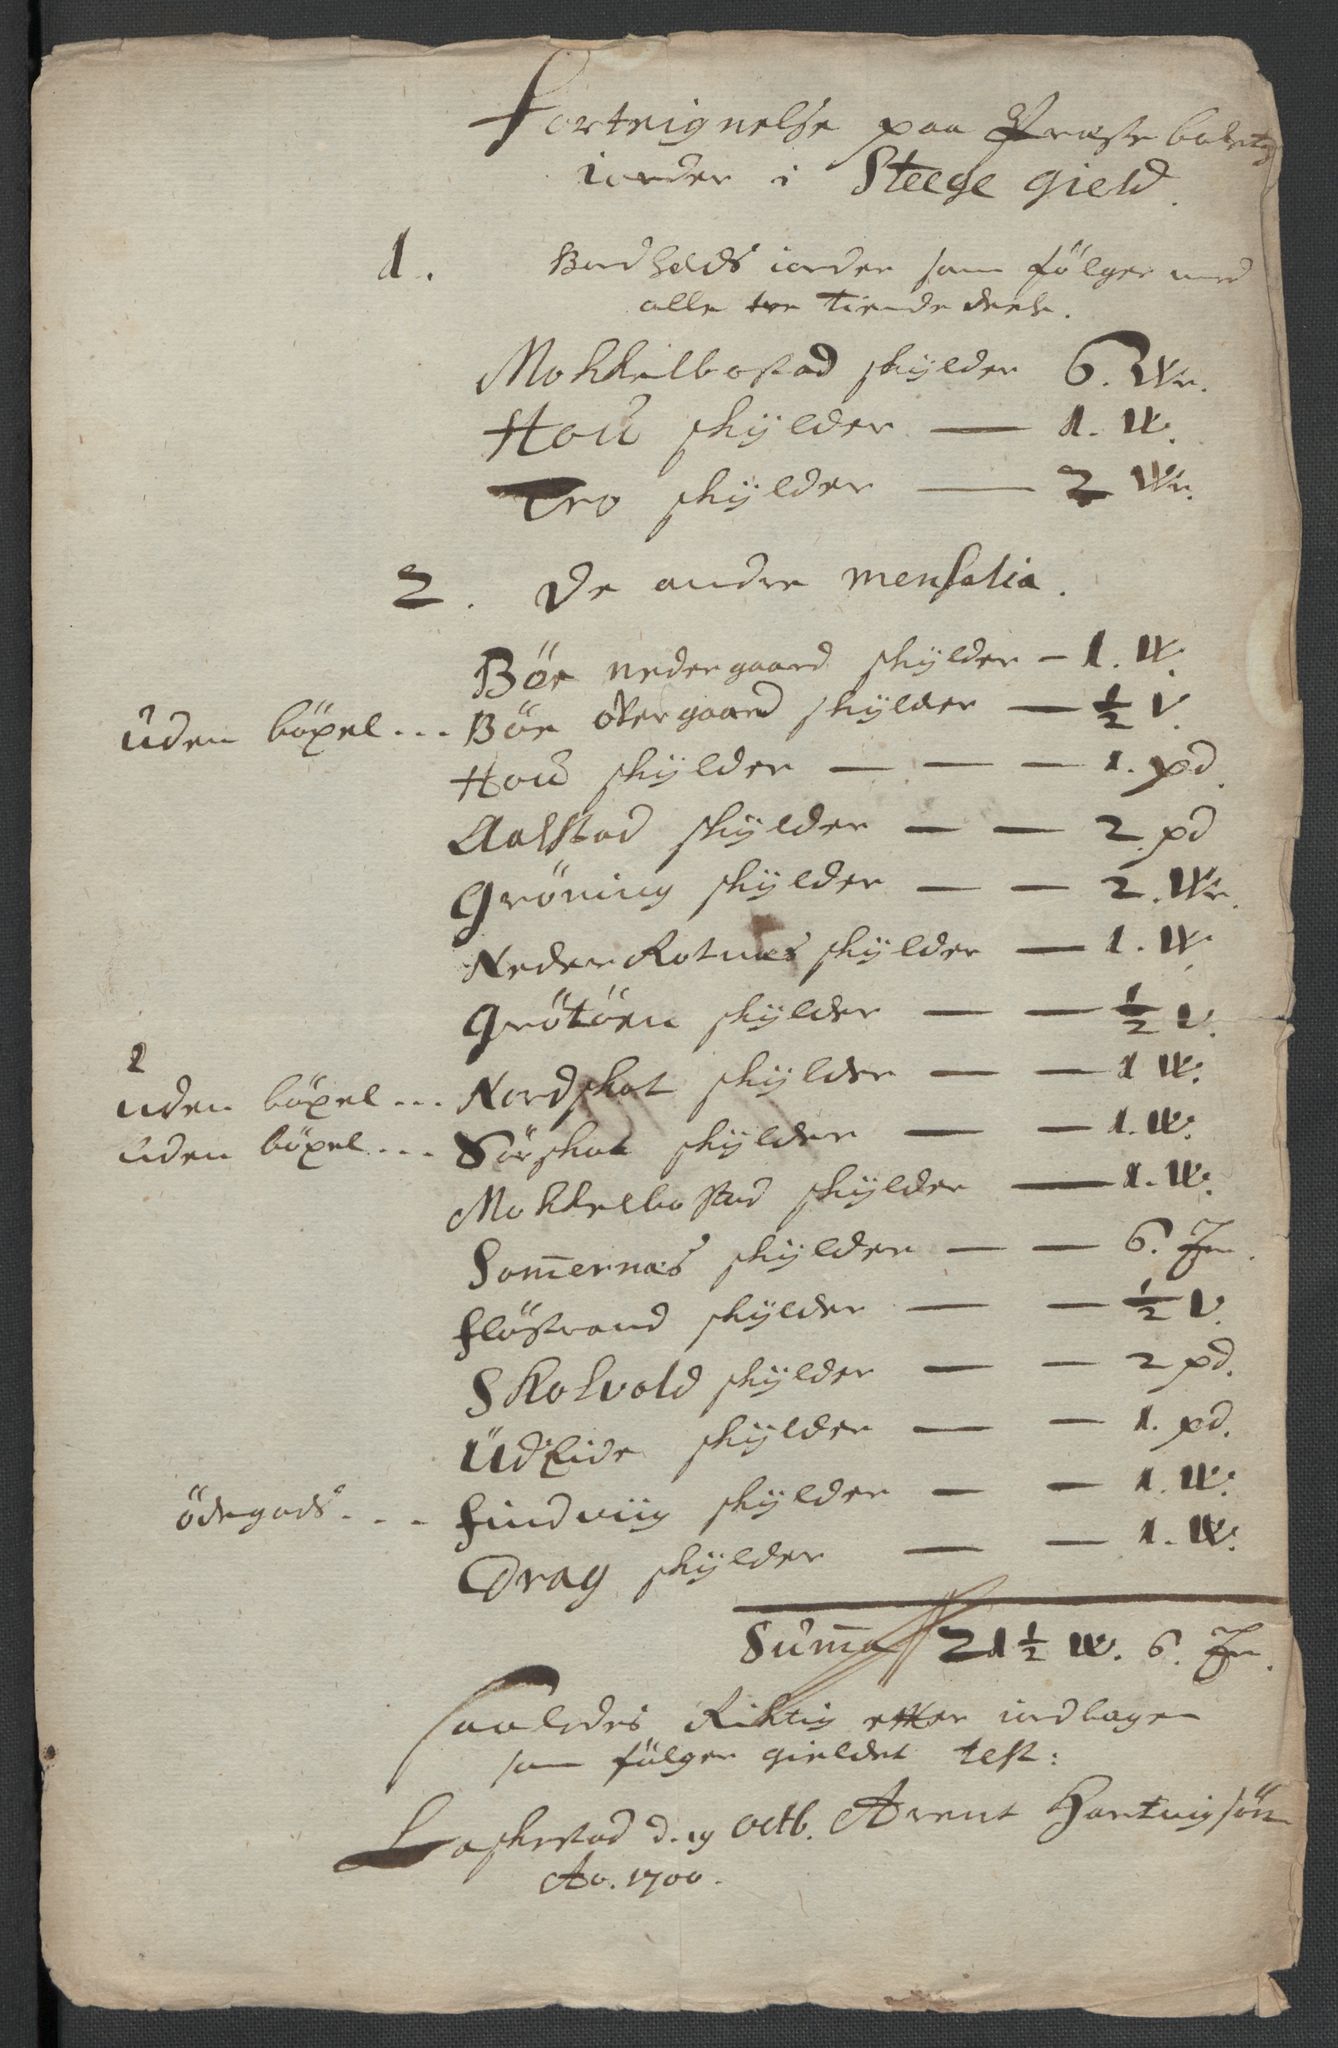 Forteignelse paa Præste bolets
iorder i Steege gield.
1. Bordholds iorder som fölger med
alle tre tiende deele.
Mokkelbostad skylder 6. Wr.
Hou skÿlder — 1. W.
Tro skÿlder — 2 Wr.
2. De andre mensalia.
Böe nedergaard skÿlder — 1. W.
uden böxel... Böe overgaard skÿlder — ½ V.
Hou skÿlder — — — 1. pd.
Aalstad skÿlder — — 2 pd
Gröning skÿlder — — 2. Wr.
Neder Rotnes skÿlder — 1. W.
Grötöen skÿlder — — ½ V.
uden böxel... Nordskot skÿlder — — 1 W.
uden böxel... Sörskot skÿlder — — 1. W.
Mokkelbostad skÿlder — 1. W.
Som̅ernæs skÿlder — — 6.
flöstrand skÿlder — — ½ V.
Skolvold skÿlder — — 2 pd.
UdEide skÿlder — — 1. pd.
ödegods... findviig skÿlder — — 1. W.
Drag skÿlder — — 1. W.
Sum̅a 21½ W. 6.
saaledes Riktig etter iordbogen
som fölger gieldet test:
Laskestad d. 19 octb. Arent Hartvigsön
Ao. 1700.